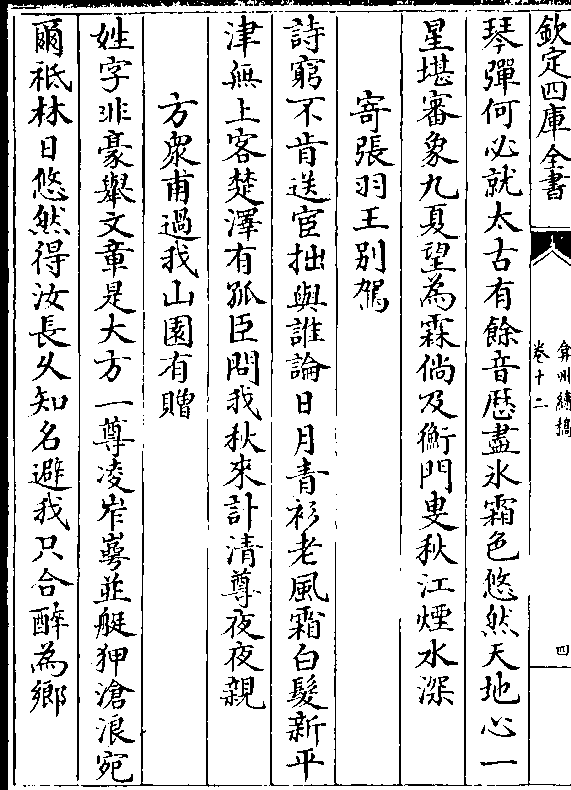 欽定四庫全書
弇州續稿
卷十二
四
琴彈何必就太古有餘音歷盡氷霜色悠然天地心一
星堪審象九夏望為霖倘及衡門叟秋江煙水深
寄張羽王别駕
詩窮不肯送宦拙與誰論日月青衫老風霜白髮新平
津無上客楚澤有孤臣問我秋來計清尊夜夜親
方衆甫過我山園有贈
姓字非豪舉文章是大方一尊凌岝崿並艇狎滄浪宛
爾祇林日悠然得汝長久知名避我只合醉為鄉